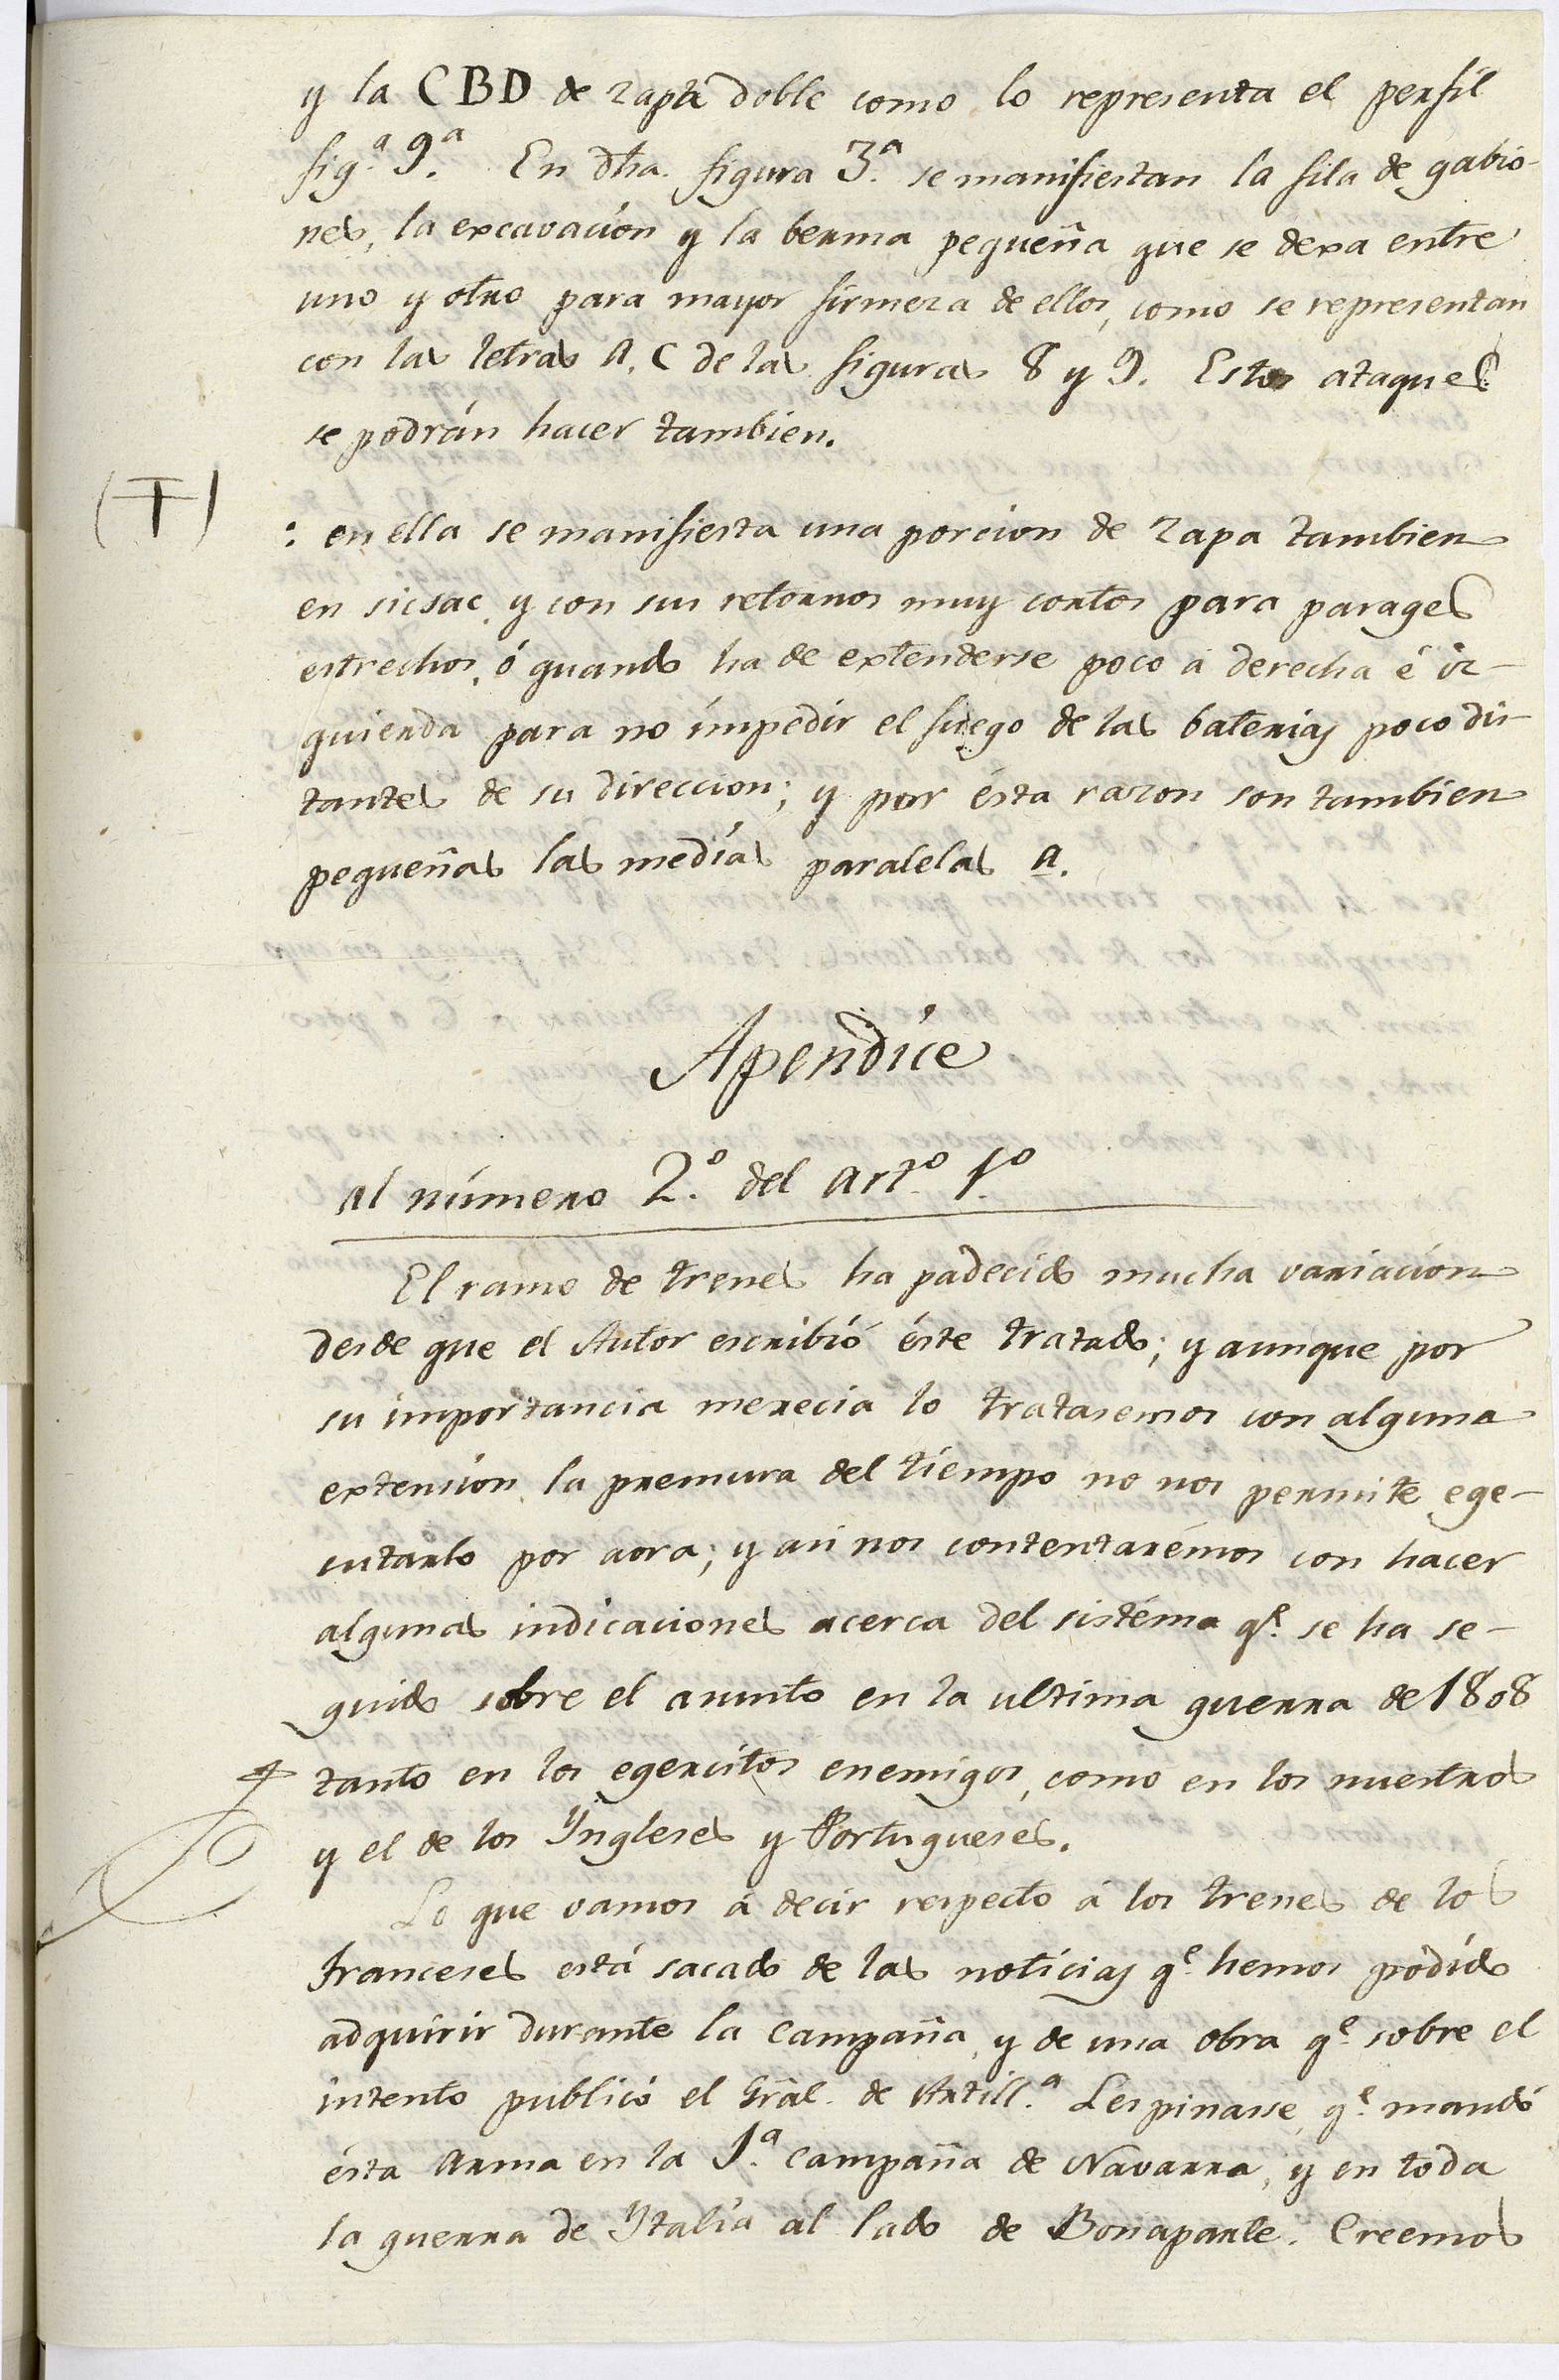 y la CBD de zapa doble como lo representa el perfil
fig.ª 9.ª En dha. figura 3.ª se manifiestan la fila de gabio-
nes, la excavación y la berma pequeña que se dexa entre
uno y otro para mayor firmeza de ellos, como se representan
con las letras A, C de las figuras 8 y 9. Estos ataques
se podrán hacer tambien.
(T)
: en ella se manifiesta una porcion de zapa tambien
en sicsac, y con sus retornos muy cortos para parages
estrechos, ó quando ha de extenderse poco á derecha é iz-
quierda para no impedir el fuego de las baterias poco dis-
tantes de su direccion; y por ésta razon son tambien
pequeñas las medias paralelas a.
Apendice
al número 2.º del art.º 1.º
El ramo de trenes ha padecido mucha variación
desde que el Autor escribió éste tratado; y aunque por
su importancia merecia lo tratasemos con alguna
extension, la premura del tiempo no nos permite ege-
cutarlo por aora; y asi nos contentarémos con hacer
algunas indicaciones acerca del sistéma q.e se ha se-
guido sobre el asunto en la ultima guerra de 1808
tanto en los egercitos enemigos, como en los nuestros
y el de los Yngleses y Portugueses.
Lo que vamos á decir respecto á los trenes de los
franceses está sacado de las noticias q.e hemos podido
adquirir durante la campaña, y de una obra q.e sobre el
intento publicó el Gral. de Artill.ª Lespinasse, q.e mandó
ésta arma en la 1.ª campaña de Navarra, y en toda
la guerra de Ytalia al lado de Bonaparte. Creemos